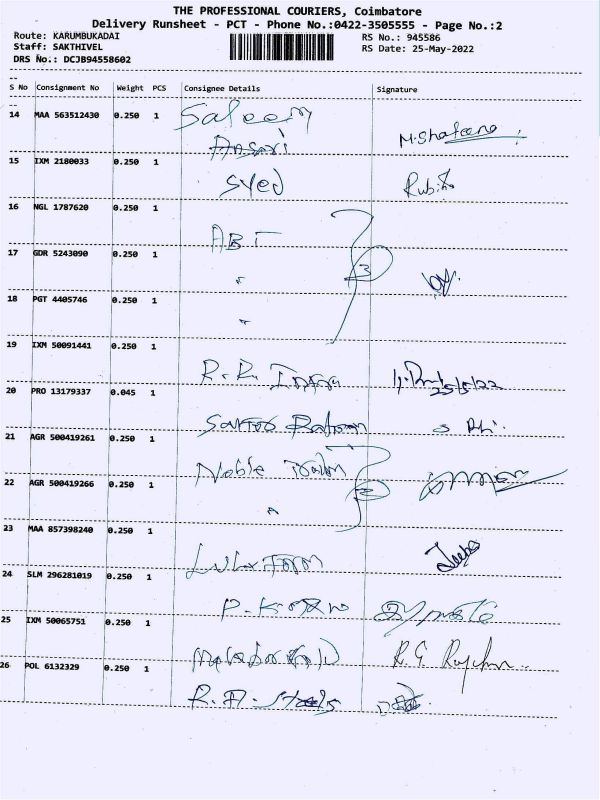 THE PROFESSIONAL COURIERS, Coimbatore
Delivery Runsheet - PCT - Phone No.:0422-3505555 - Page No.:2
Route: KARUMBUKADAI RS No.: 945586
Staff: SAKTHIVEL RS Date: 25-May-2022
DRS No.: DCJB94558602
S No Consignment No Weight PCS Consignee Details Signature
14 MAA 563512430 0.250 1 Saleem
Ansari
15 IXM 2180033 0.250 1
Syed
16 NGL 1787620 0.250 1
ABT
17 GDR 5243090 0.250 1
"
3
18 PGT 4405746 0.250 1
"
19 IXM 50091441 0.250 1
R.R.
25/5/22
20 PRO 13179337 0.045 1
21 AGR 500419261 0.250 1
Noble
22 AGR 500419266 0.250 1
"
23 MAA 857398240 0.250 1
24 SLM 296281019 0.250 1
P.
25 IXM 50065751 0.250 1
R.G
26 POL 6132329 0.250 1
R.A. Steels